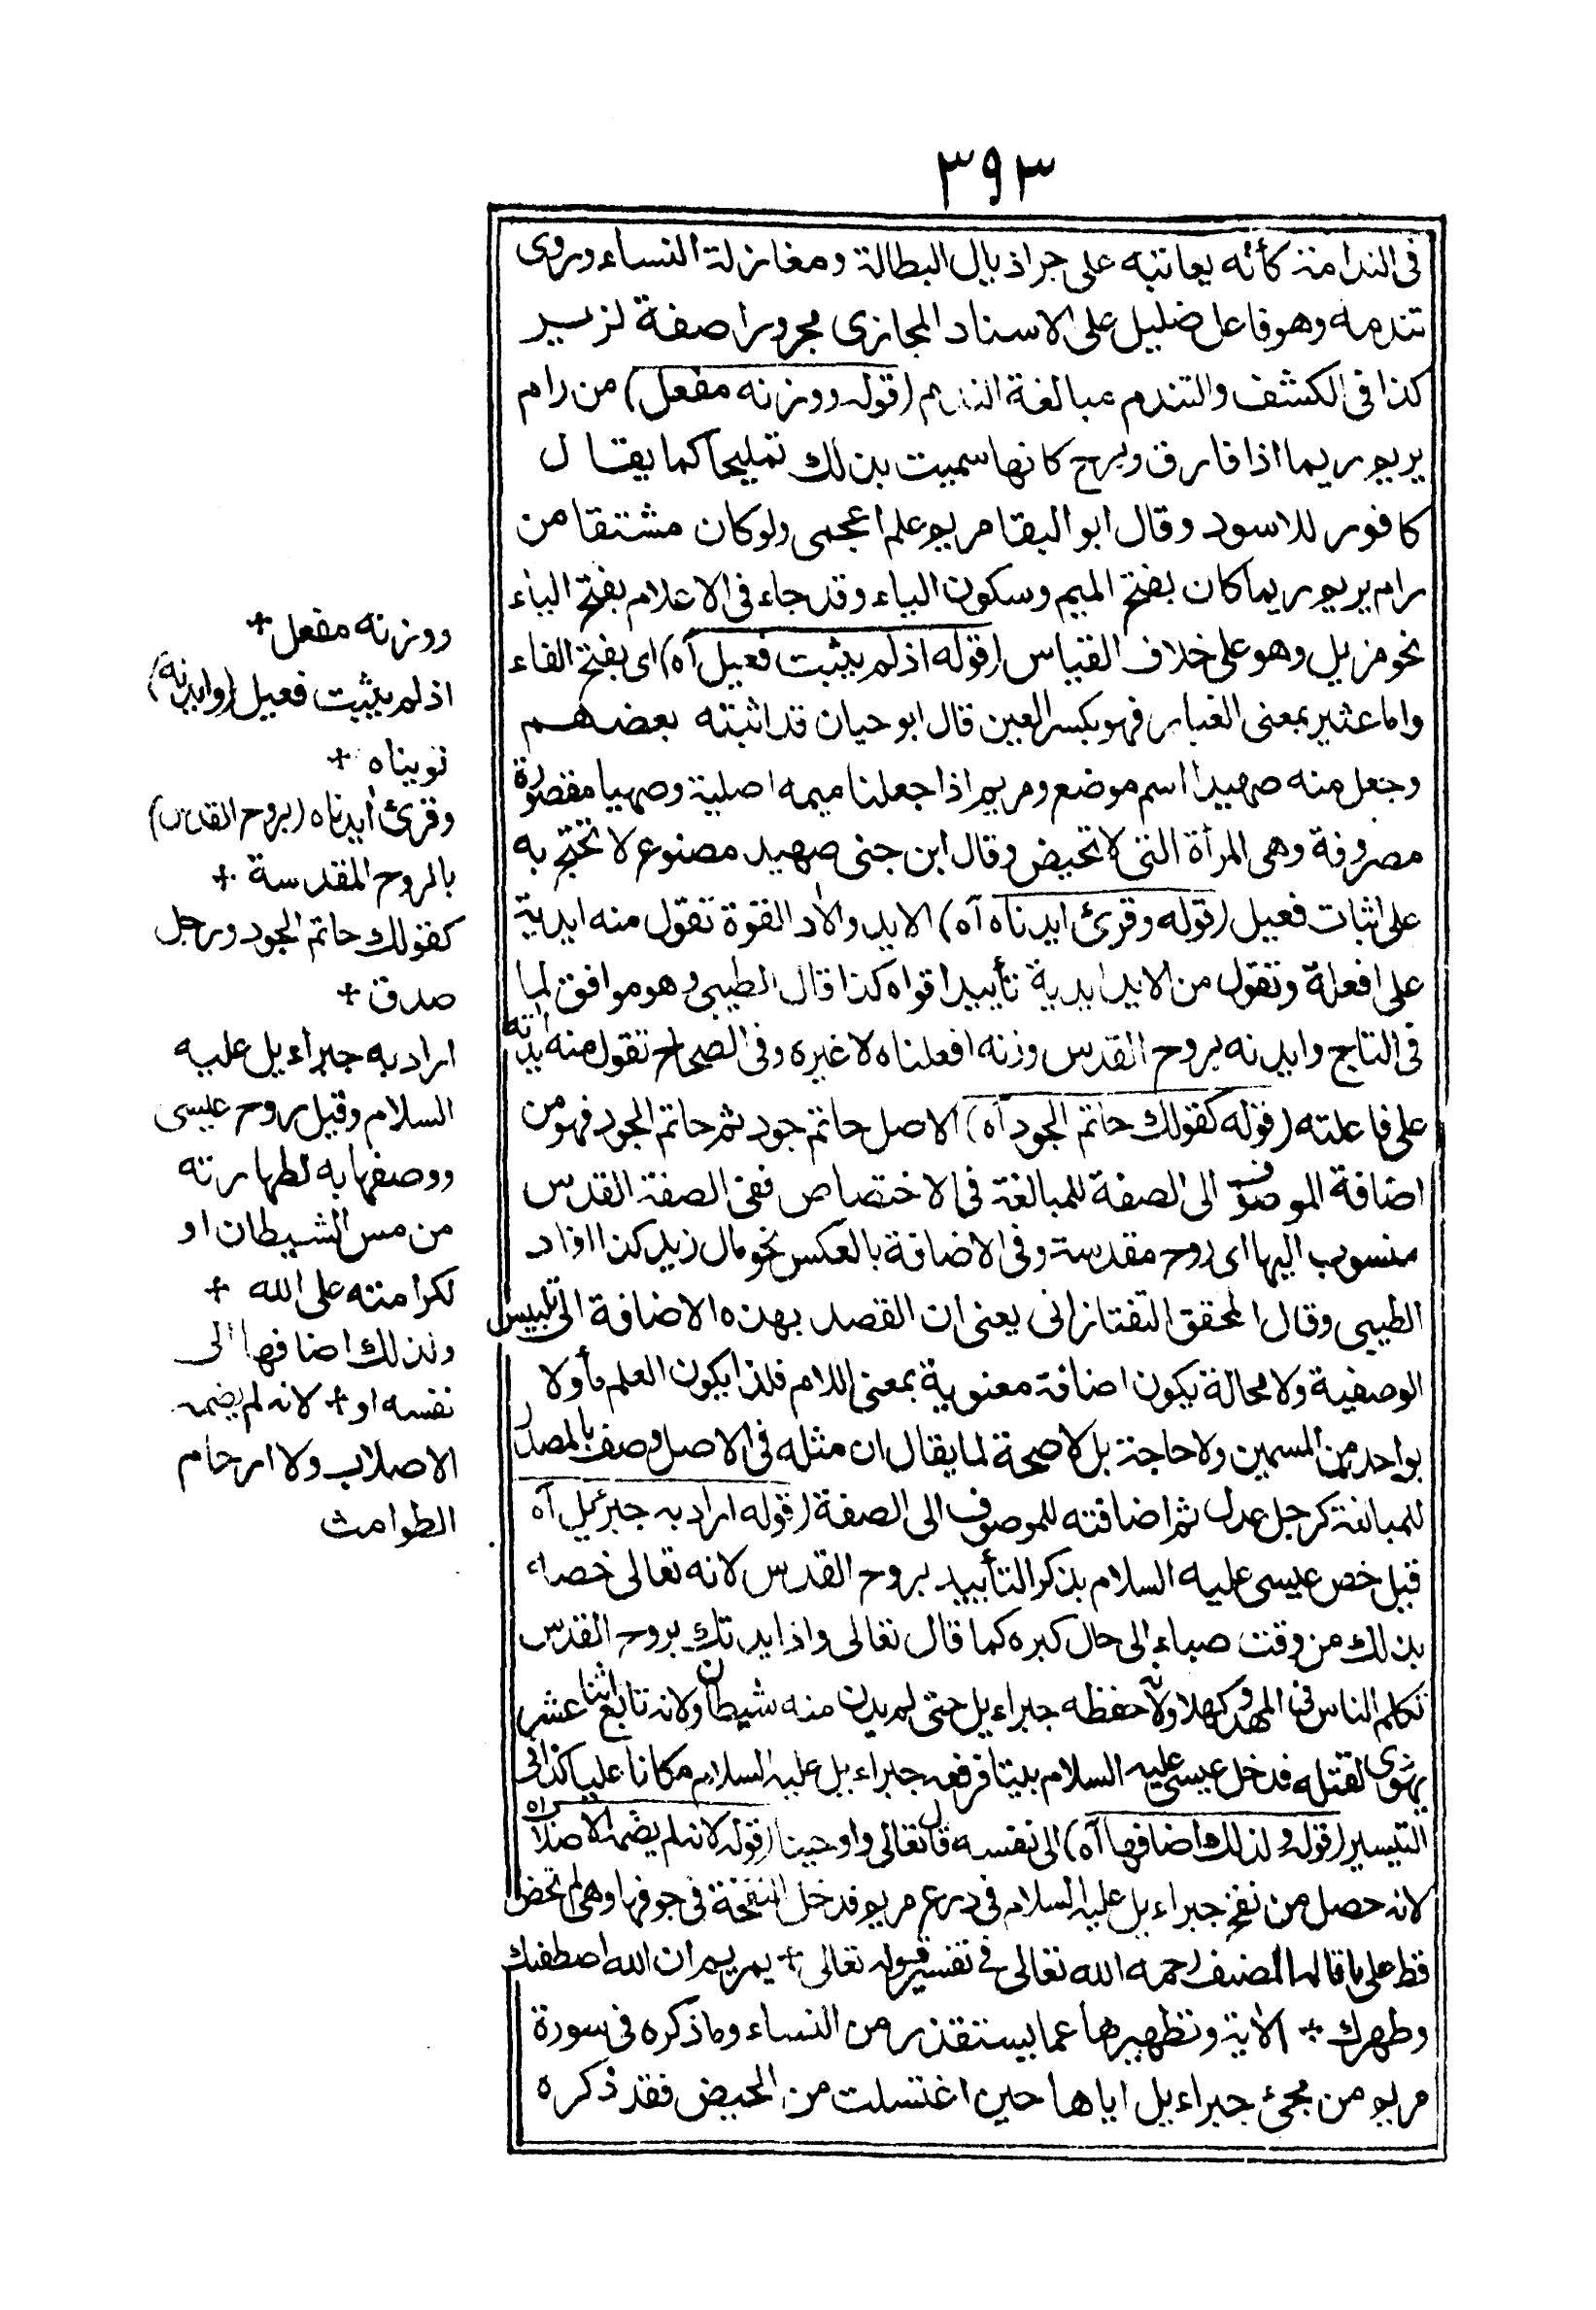 ٣٩٣
فى الندامة كأنه يعاتبه على جر اذيال البطالة ومغازلة النساء وروى
تندمه وهو فاعل ضليل على الاسناد المجازى مجرورا صفة لزير
كذا فى الكشف والتندم مبالغة الندم (قوله ووزنه مفعل) من رام
يريم ريما اذا فارق وبرح كانها سميت بذلك تمليحا كما يقال
كافور للاسود وقال ابو البقا مريم علم اعجمى ولو كان مشتقا من
رام يريم ريما كان بفتح الميم وسكون الياء وقد جاء فى الاعلام بفتح الياء
نحو مزيل وهو على خلاف القياس (قوله اذ لم يثبت فعيل آه) اى بفتح الفاء
واما عثير بمعنى الغبار فهو بكسر العين قال ابو حيان قد اثبته بعضهم
وجعل منه صهيدا اسم موضع ومريم اذا جعلنا ميمه اصلية وصهيا مقصورة
مصروفة وهى المرأة التى لا تحيض وقال ابن جنى صهيد مصنوع لا تحتج به
على اثبات فعيل (قوله وقرئ ايدناه آه) الايد والآد القوة تقول منه ايدية
على افعلة وتقول من الايد ايدية تأييدا قواه كذا قال الطيبى وهو موافق لما
فى التاج وايدنه بروح القدس وزنه افعلناه لا غيره وفى الصحاح تقول منه آيدته
على فاعلته (قوله كقولك حاتم الجود آه) الاصل حاتم جود ثم حاتم الجود فهو من
اضافة الموصوف الى الصفة للمبالغة فى الاختصاص ففى الصفة القدس
منسوب اليها اى روح مقدسة وفى الاضافة بالعكس نحو مال زيد كذا افاد
الطيبى وقال المحقق التفتازانى يعنى ان القصد بهذه الاضافة الى تلبيس
الوصفية ولا محالة يكون اضافة معنوية بمعنى اللام فلذا يكون العلم مأولا
بواحد من المسمين ولا حاجة بل لا صحة لما يقال ان مثله فى الاصل وصف بالمصدر
للمبالغة كرجل عدل ثم اضافته للموصوف الى الصفة (قوله اراد به جبرئيل آه
قيل خص عيسى عليه السلام بذكر التأييد بروح القدس لانه تعالى خصه
بذلك من وقت صباه الى حال كبره كما قال تعالى واذ ايدتك بروح القدس
تكلم الناس فى المهد وكهلا ولانه حفظه جبراءيل حتى لم يدن منه شيطان ولانه تابع اثنا عشر
يهودى لقتله فدخل عيسى عليه السلام بيتا فرفعه جبراءيل عليه السلام مكانا عليا كذا فى
التيسير (قوله ولذلك اضافها آه) الى نفسه قال تعالى واوحينا (قوله لانه لم يضمه الاصلاب آه
لانه حصل من نفخ جبراءيل عليه السلام فى درع مريم فدخل النفخة فى جوفها وهى لم تحض
قط على ما قاله المصنف رحمه الله تعالى فى تفسير قوله تعالى + يمريم ان الله اصطفىك
وطهرك + الآية وتطهيرها عما يستقذر من النساء وما ذكره فى سورة
مريم من مجئ جبراءيل اياها حين اغتسلت من الحيض فقد ذكره
ووزنه مفعل +
اذ لم يثبت فعيل (وايدنه)
قويناه +
وقرئ أيدناه (بروح القدس)
بالروح المقدسة +
كقولك حاتم الجود ورجل
صدق +
اراد به جبراءيل عليه
السلام وقيل روح عيسى
ووصفها به لطهارته
من مس الشيطان او
لكرامته على الله +
ولذلك اضافها الى
نفسه او + لانه لم يضمه
الاصلاب ولا ارحام
الطوامث